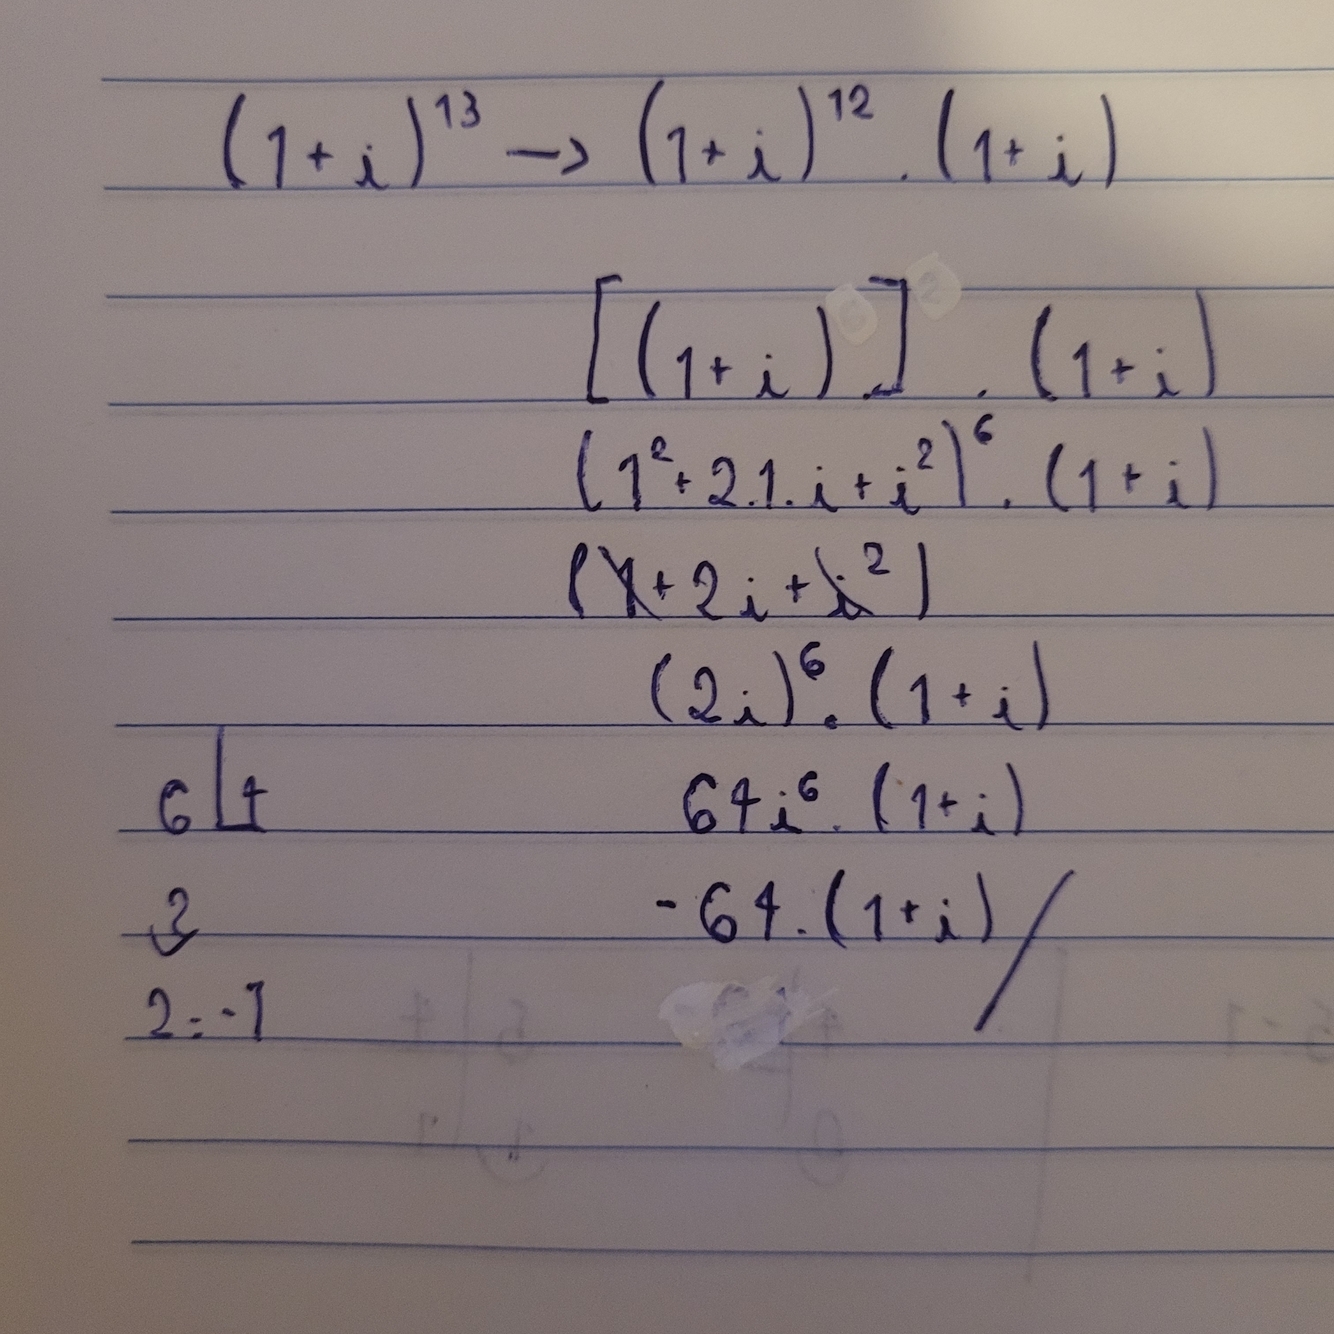 (1+i)¹³ → (1+i)¹² . (1+i)
[(1+i) ] . (1+i)
(1²+2.1.i+i²)⁶ . (1+i)
(1+2i+i²)
(2i)⁶ . (1+i)
6 4
64i⁶ . (1+i)
2
-64.(1+i)
2=-1